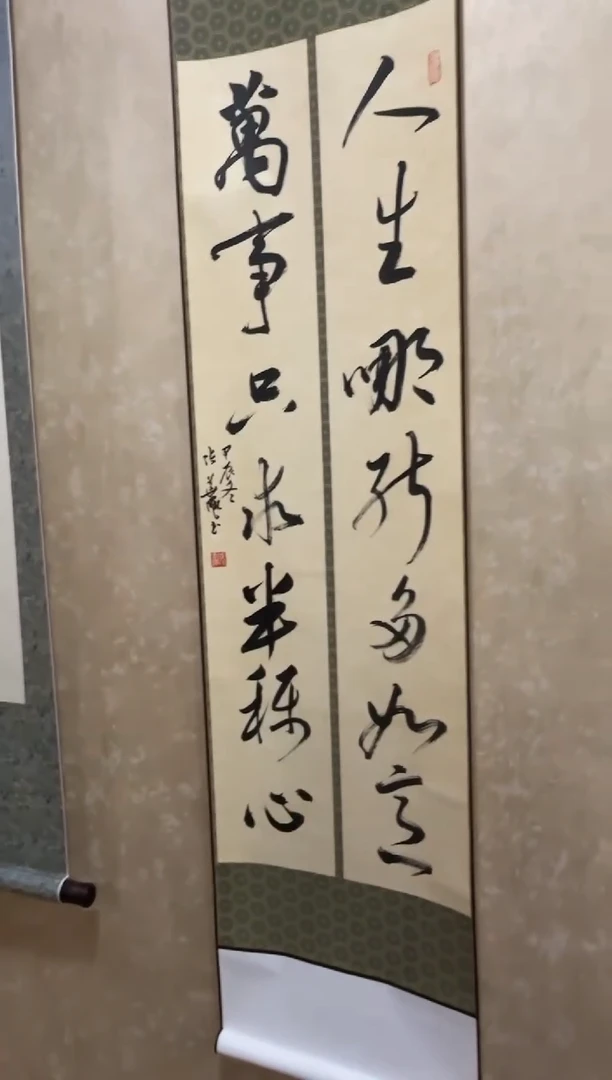 人生哪能多如意
萬事只求半称心
甲辰冬